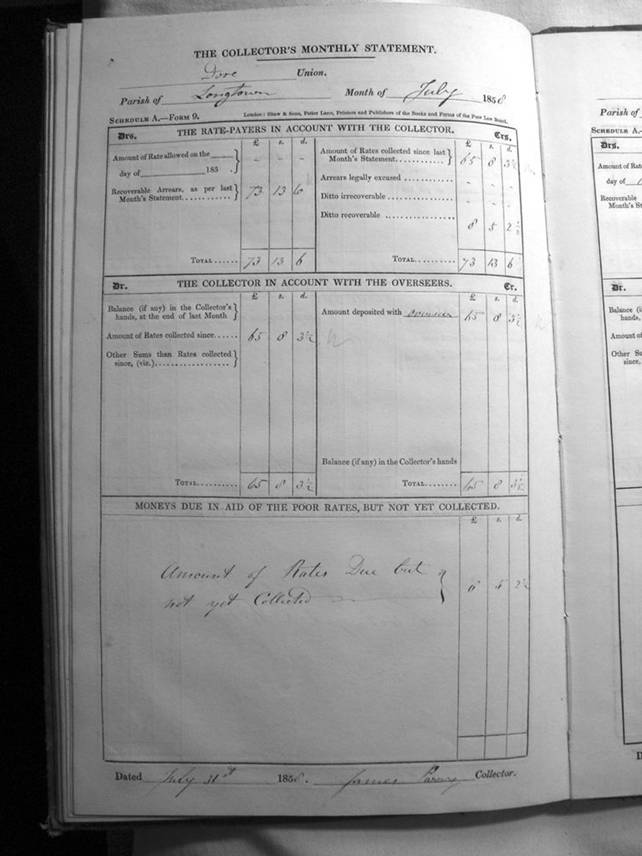 THE COLLECTOR'S MONTHLY STATEMENT.
Dore Union.
Parish of Longtown Month of July 1858
SCHEDULE A.—FORM 9. London: Shaw & Sons, Fetter Lane, Printers and Publishers of the Books and Forms of the Poor Law Board.
Drs. THE RATE-PAYERS IN ACCOUNT WITH THE COLLECTOR. Crs.
£ s. d. £ s. d.
Amount of Rate allowed on the
day of 185 . } - - -
Recoverable Arrears, as per last
Month's Statement............ } 73 13 6
Amount of Rates collected since last
Month's Statement............ } 65 8 3½
Arrears legally excused ............ - - -
Ditto irrecoverable ................ - - -
Ditto recoverable ................ 8 5 2½
TOTAL ...... 73 13 6 TOTAL.......... 73 13 6
Dr. THE COLLECTOR IN ACCOUNT WITH THE OVERSEERS. Cr.
£ s. d. £ s. d.
Balance (if any) in the Collector's
hands, at the end of last Month }
Amount of Rates collected since...... 65 8 3½
Other Sums than Rates collected
since, (viz.).................. }
Amount deposited with overseers 65 8 3½
Balance (if any) in the Collector's hands
TOTAL...... 65 8 3½ TOTAL........ 65 8 3½
MONEYS DUE IN AID OF THE POOR RATES, BUT NOT YET COLLECTED.
£ s. d.
Amount of Rates Due but
not yet Collected } 8 5 2½
Dated July 31st 1858. James Collector.
Parish of
SCHEDULE A.
Drs.
Amount of
day of
Recoverable
Month's St
Dr.
Balance (if
hands,
Amount of
Other Sum
since,